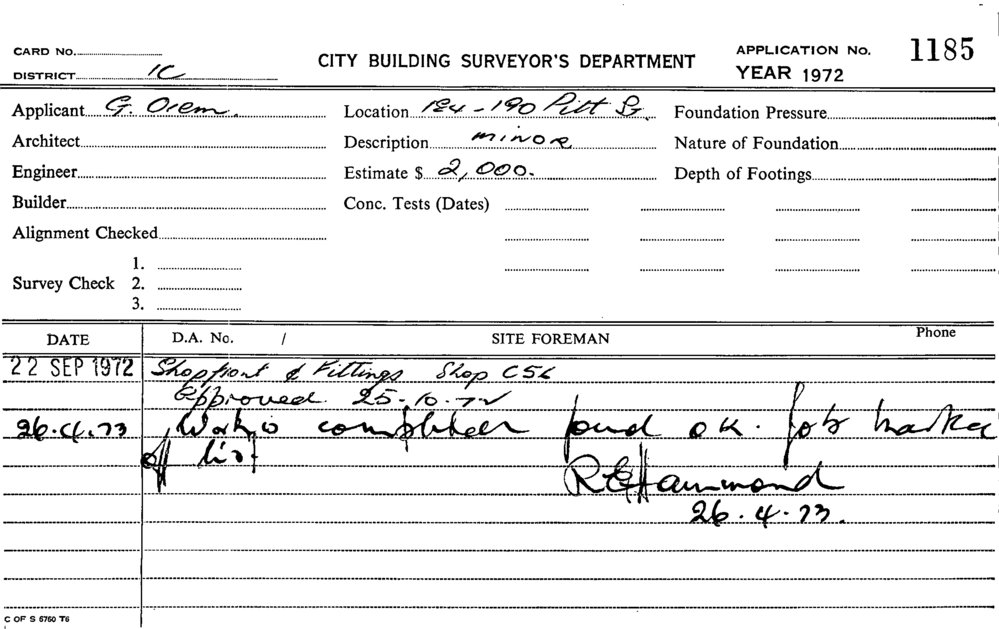 CARD No.
DISTRICT 1C
CITY BUILDING SURVEYOR'S DEPARTMENT
APPLICATION No. 1185
YEAR 1972
Applicant G. Orem.
Location 184-190 Pitt St.
Foundation Pressure
Architect
Description minor
Nature of Foundation
Engineer
Estimate $ 2,000.
Depth of Footings
Builder
Conc. Tests (Dates)
Alignment Checked
Survey Check 1.
2.
3.
DATE D.A. No. / SITE FOREMAN Phone
22 SEP 1972 Shopfront & Fittings Shop C56
Approved 25-10-72
26.4.73 Work is completed found ok. Job marked
off list
R E Hammond
26.4.73.
C OF S 6760 T6